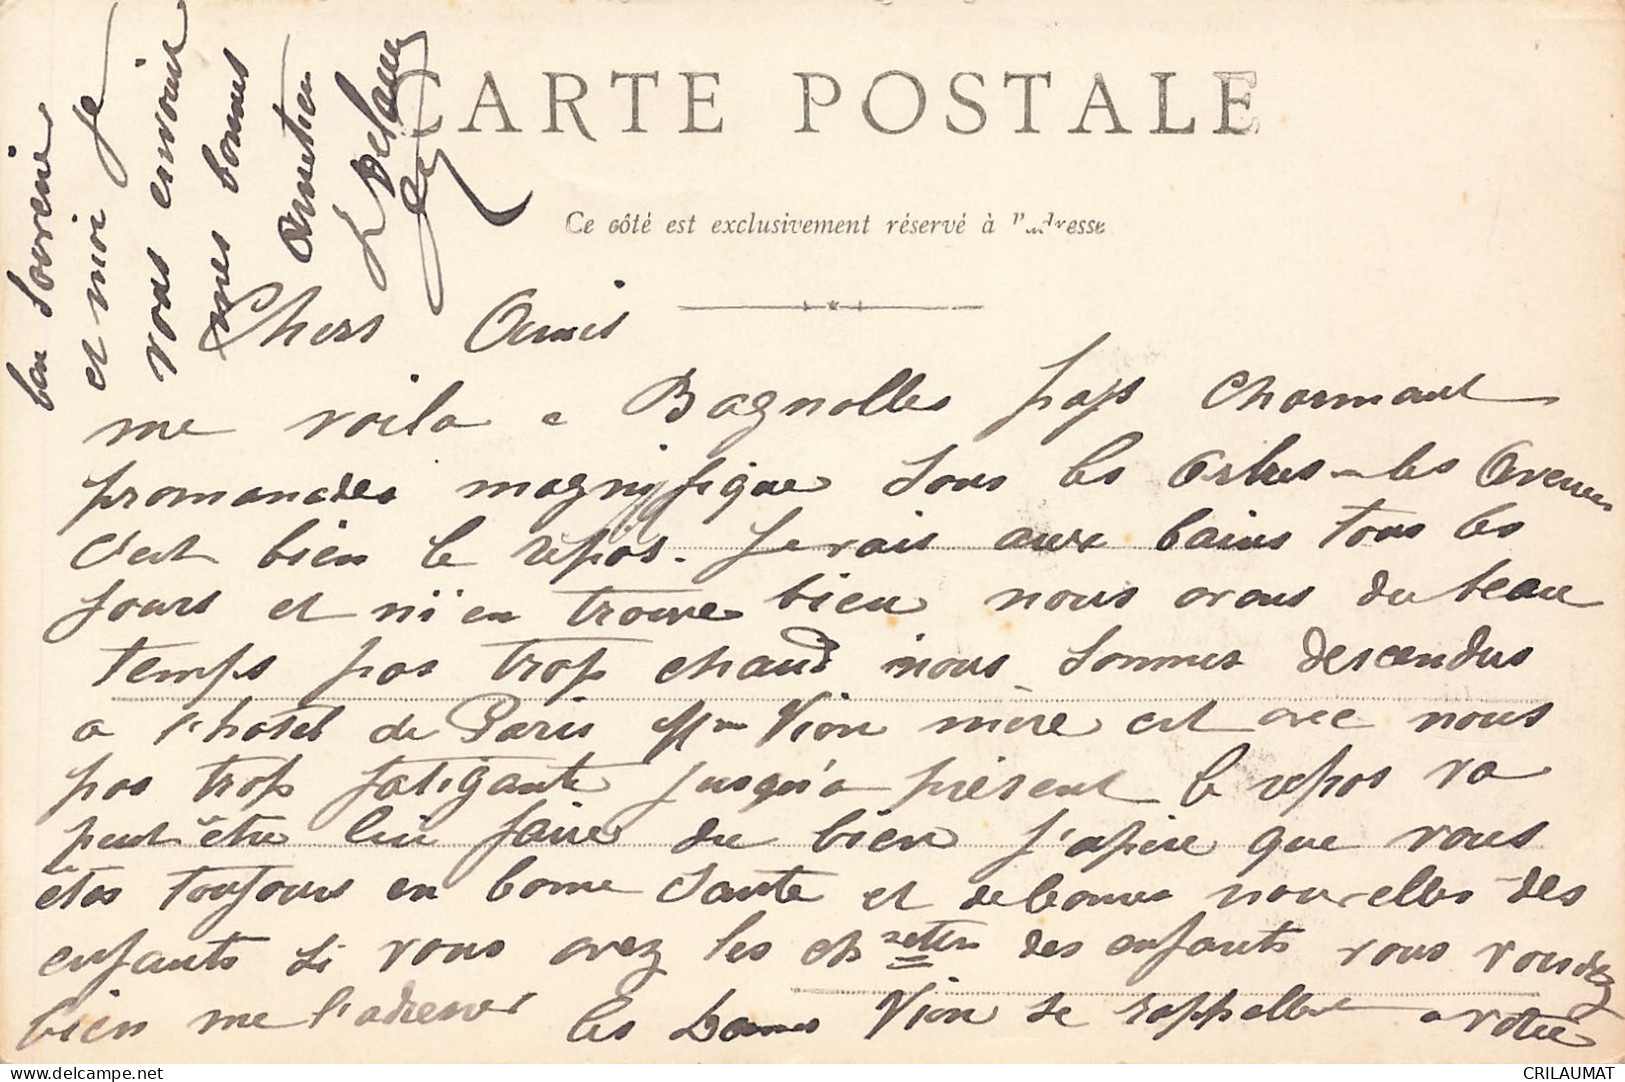 CARTE POSTALE
Ce côté est exclusivement réservé à l'adresse
Chers Amis
me voila a Bagnolles pays charmant
promanades magnifique sous les Arbres les Avenues
c'est bien le repos. Je vais aux bains tous les
jours et m'en trouve bien nous avons du beau
temps pas trop chaud nous sommes descendus
a l'hotel de Paris Mme Vion mère est avec nous
pas trop fatigante jusqu'a présent le repos va
peut être lui faire du bien J'espère que vous
êtes toujours en bonne Santé et de bonnes nouvelles des
enfants Si vous avez les des enfants vous voudrez
bien me l'adresser les Dames Vion se rappellent a votre
bon Souvenir
et moi je
vous envoie
mes bonnes
Amitiés
delchampet.net
CRILAUMAT